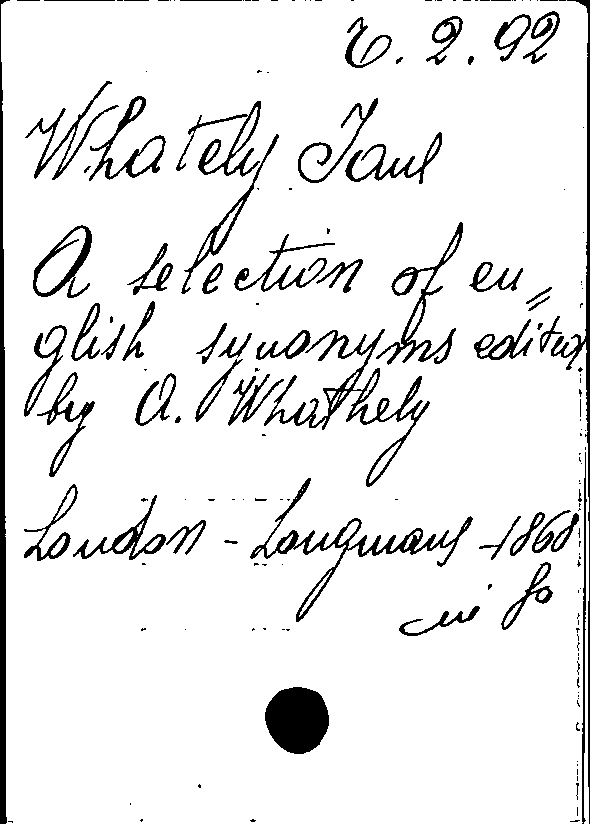 6. 2. 92
Whately Jane
A selection of en=
glish synonyms edited
by A. Whathely
London - Longmans - 1868
in 8o